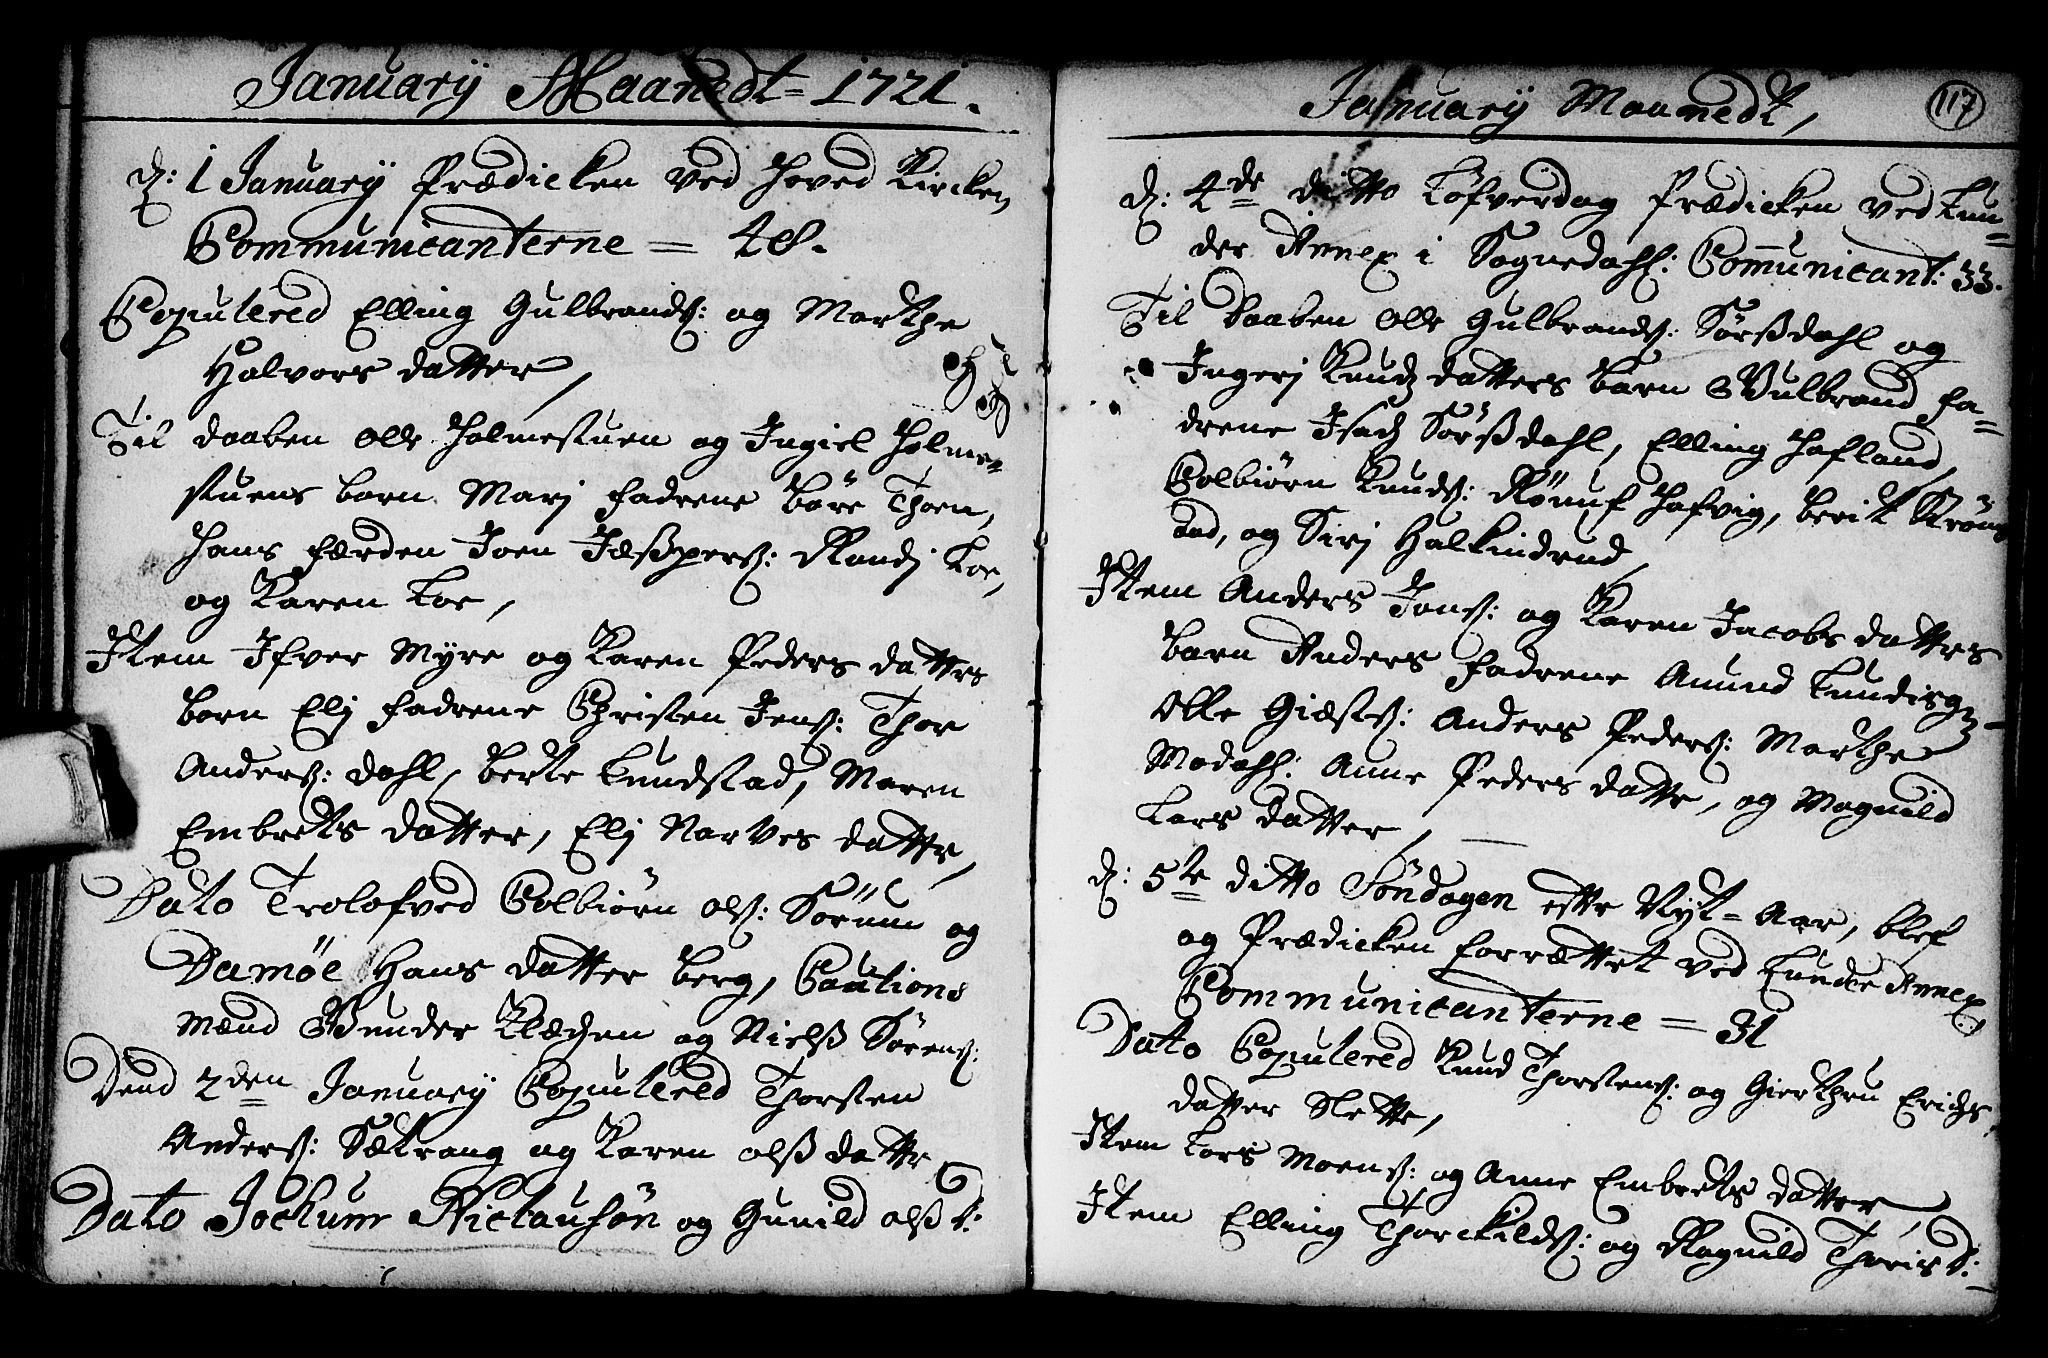 January Maanedt = 1721.
d: 1 January Prædicken ved Hoved Kircken,
Communicanterne = 48.
Copulered Elling Gulbrandß: og Marthe
Halvors datter,
Til daaben Olle Holmestuen og Ingiel Holme=
stuens barn Marj fadrene Børe Thoen,
Hans Færden Joen Jæßperß: Randj Loe,
og Karen Loe,
Item Ifver Myre og Karen Peders datters
barn Elj fadrene Christen Jenß: Thor
Anderß: Dahl, Berte Lundstad, Maren
Embrets datter, Elj Narves datter,
Dato Trolofved Colbiørn Olß: Sørum og
Damøe Hans datter Berg, Cautions
mænd Gunder Klæchen og Nielß Sørenß:
Dend 2den January Copulered Thorsten
Anderß: Sætrang og Karen Olß datter
Dato Jochum Niclausøn og Gunild Olß d:
January Maanedt,
117
d: 4de ditto Løfverdag Prædicken ved Lun=
der Annex i Sognedahl: Comunicant: 33.
Til Daaben Olle Gulbrandß: Sørßdahl og
Ingerj Knudz datters barn Gulbrand fa=
drene Isach Sørßdahl, Elling Hafland,
Colbiørn Knudß: Rønuf Hafvig, Berit Krøng
dad, og Sirj Halkindrud,
Item Anders Jonß: og Karen Jacobs datters
barn Anders fadrene Amund
Olle Giæstß: Anders Pederß: Marthe
Modahl: Anne Peders datter, og Magnild
Lars datter,
d: 5te ditto Søndagen efter Nyt=Aar, blef
og Prædicken forrættet ved Lunde Annex,
Communicanterne = 31
Dato Copulered Knud Thorstenß: og Gierthru Erichs
datter Slette,
Item Lars Moenß: og Anne Embrets datter,
Item Elling Thorckildß: og Ragnild Thoris d: